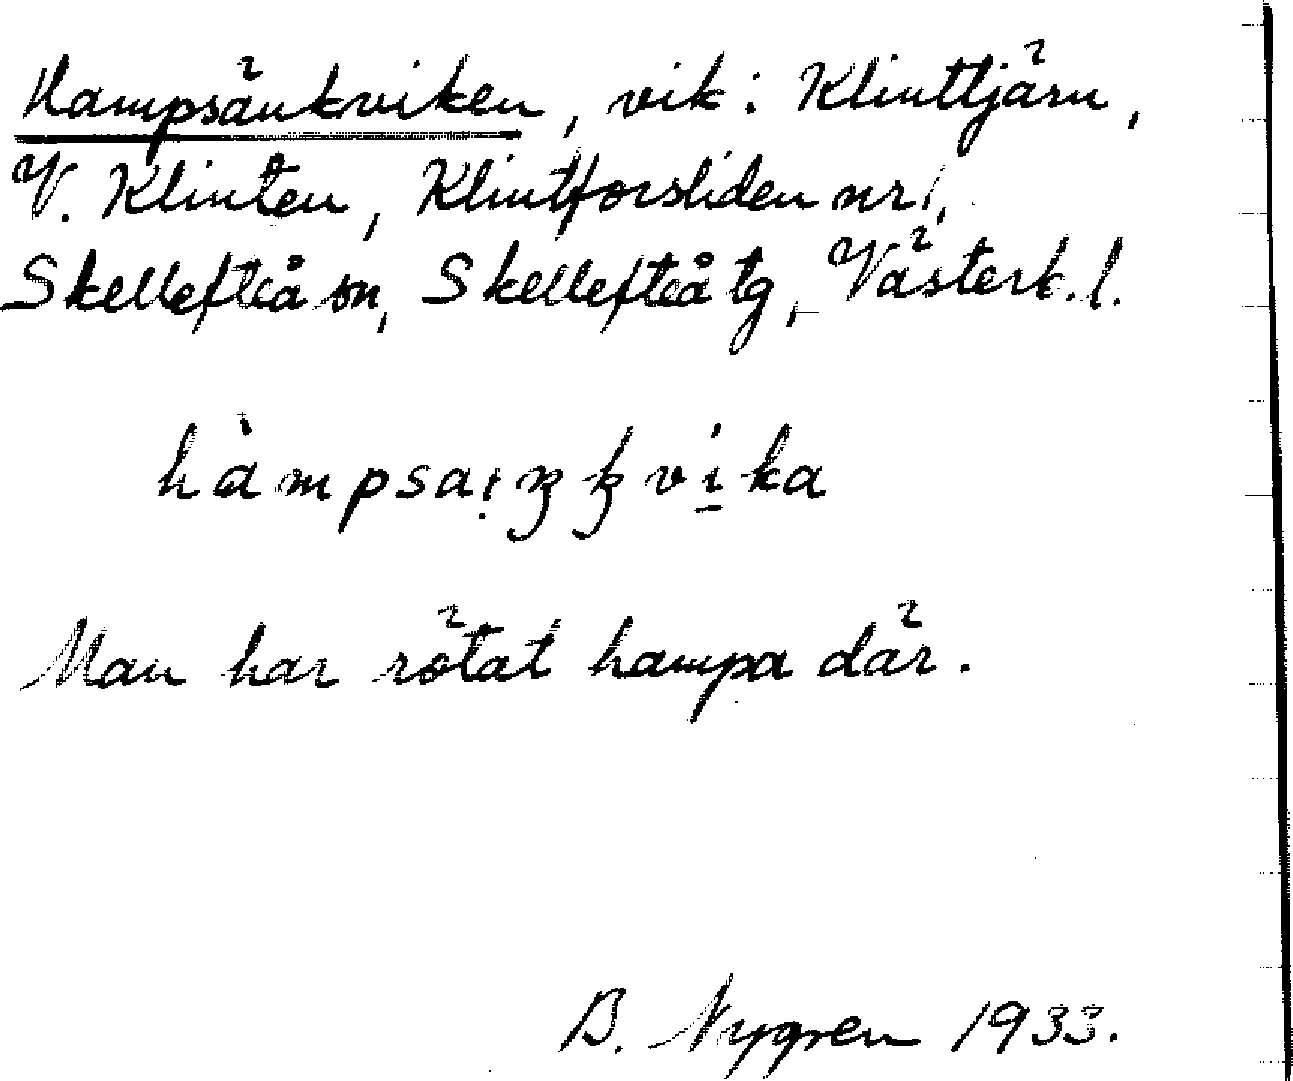 Hampsänkviken, vik i Klinttjärn,
V. Klinten, Klintforsliden nr 1,
Skellefteå sn, Skellefteå tg, Västerb. l.
hàmpsaiŋkvika
Man har rötat hampa där.
B. Nygren 1933.